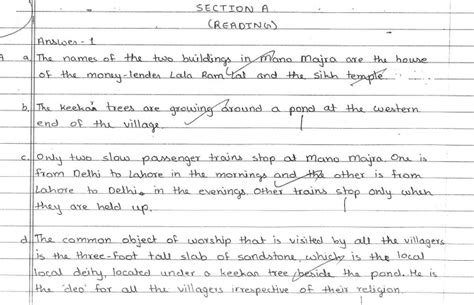 SECTION A
(READING)
Answer - 1
a. The names of the two buildings in Mano Majra are the house
of the money-lender Lala Ram Lal and the Sikh temple
b. The keekar trees are growing around a pond at the western
end of the village.
c. Only two slow passenger trains stop at Mano Majra. One is
from Delhi to Lahore in the mornings and the other is from
Lahore to Delhi, in the evenings. Other trains stop only when
they are held up.
d. The common object of worship that is visited by all the villagers
is the three-foot tall slab of sandstone, which is the local
local deity, located under a keekan tree beside the pond. He is
the 'deo' for all the villagers irrespective of their religion.